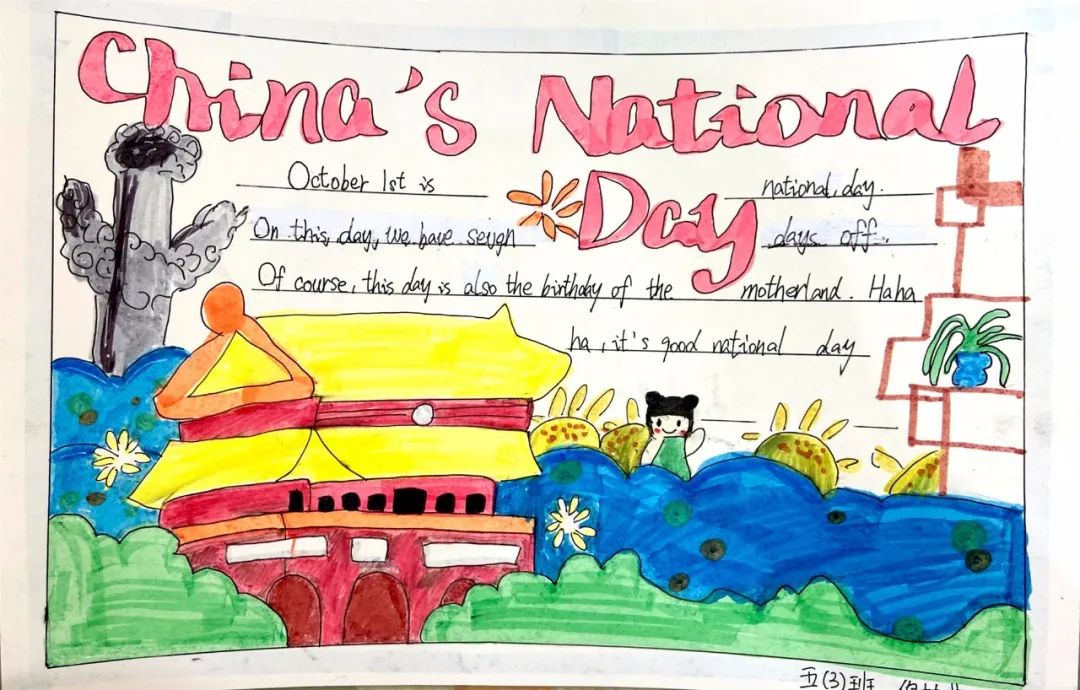 China's National
Day
October 1st is national day.
On this day, we have sevgn days off.
Of course, this day is also the birthday of the motherland. Haha
ha, it's good national day
五(3)班